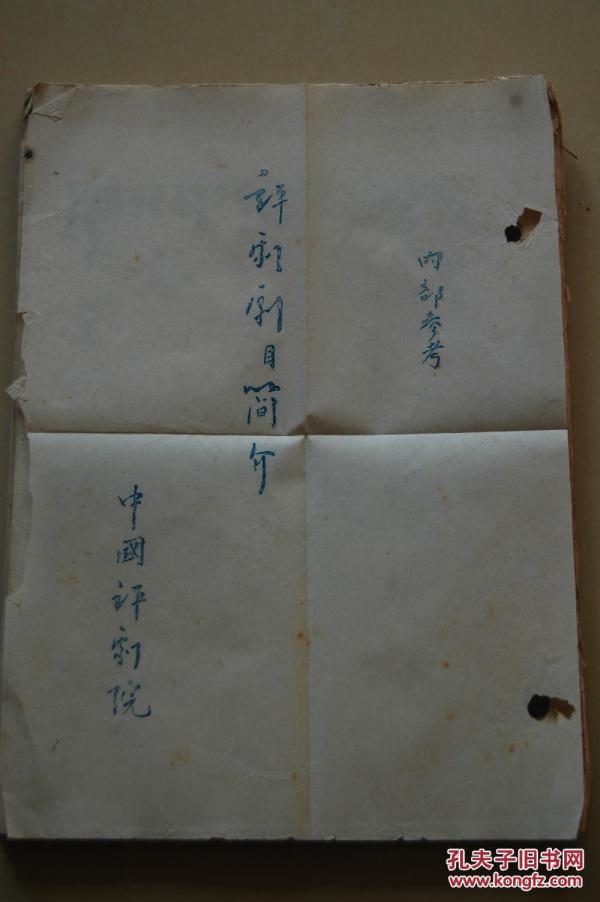 内部参考
評剧剧目简介
中國评剧院
孔夫子旧书网
www.kongfz.com